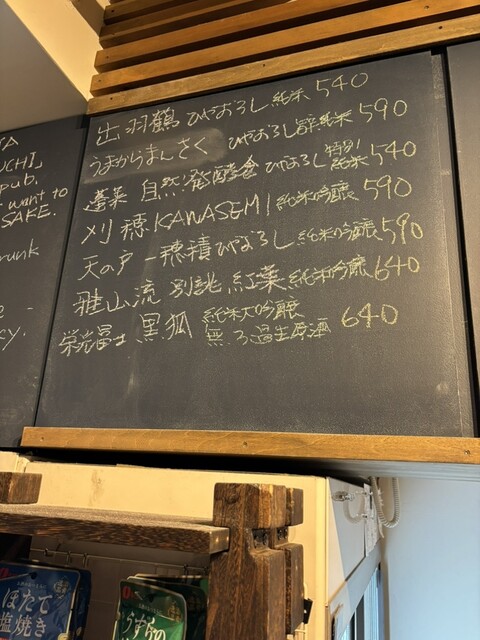 TA
UCHI,
pub.
want to
SAKE.
runk
出羽鶴 ひやおろし 純米 540
うまからまんさく ひやおろし 特別純米 590
蓬莱 自然発酵蔵 ひやおろし 特別純米 540
刈穂 KAWASEMI 純米吟醸 590
天の戸 一穂積 ひやおろし 純米吟醸 590
雅山流 別誂 紅葉 純米吟醸 640
栄光冨士 黒狐 純米大吟醸 無ろ過生原酒 640
ほたて
塩焼き
うずらの